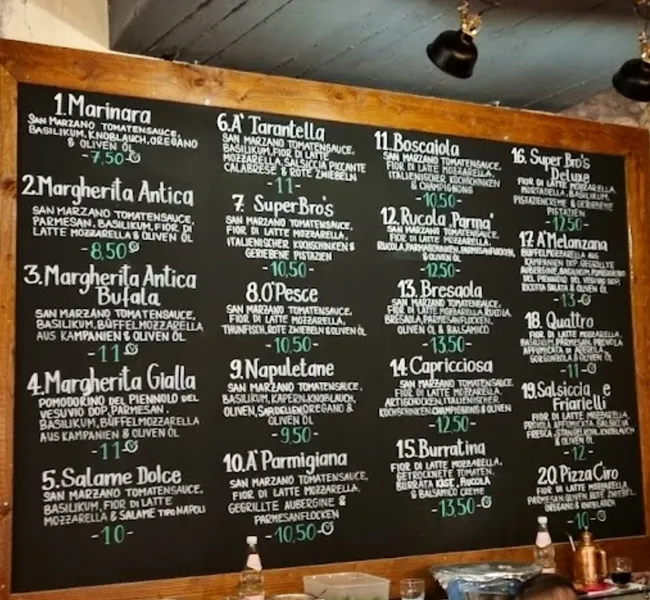 1. Marinara
SAN MARZANO TOMATENSAUCE,
BASILIKUM, KNOBLAUCH, OREGANO
& OLIVEN ÖL
-7,50-
2. Margherita Antica
SAN MARZANO TOMATENSAUCE,
PARMESAN, BASILIKUM, FIOR DI
LATTE MOZZARELLA & OLIVEN ÖL
8,50
3. Margherita Antica
Bufala
SAN MARZANO TOMATENSAUCE,
BASILIKUM, BÜFFELMOZZARELLA
AUS KAMPANIEN & OLIVEN ÖL
-11-
4. Margherita Gialla
POMODORINO DEL PIENNOLO DEL
VESUVIO DOP, PARMESAN,
BASILIKUM, BÜFFELMOZZARELLA
AUS KAMPANIEN & OLIVEN ÖL
-11-
5. Salame Dolce
SAN MARZANO TOMATENSAUCE,
BASILIKUM, FIOR DI LATTE
MOZZARELLA & SALAME TIPO NAPOLI
-10-
6. A' Tarantella
SAN MARZANO TOMATENSAUCE,
BASILIKUM, FIOR DI LATTE
MOZZARELLA, SALSICCIA PICCANTE
CALABRESE & ROTE ZWIEBELN
-11-
7. SuperBro's
SAN MARZANO TOMATENSAUCE,
FIOR DI LATTE MOZZARELLA,
ITALIENISCHER KOCHSCHINKEN &
GERIEBENE PISTAZIEN
-10,50-
8. O' Pesce
SAN MARZANO TOMATENSAUCE,
FIOR DI LATTE MOZZARELLA,
THUNFISCH, ROTE ZWIEBELN & OLIVEN ÖL
-10,50-
9. Napuletane
SAN MARZANO TOMATENSAUCE,
BASILIKUM, KAPERN, KNOBLAUCH,
OLIVEN, SARDELLEN, OREGANO &
OLIVEN ÖL
-9,50-
10. A' Parmigiana
SAN MARZANO TOMATENSAUCE,
FIOR DI LATTE MOZZARELLA,
GEGRILLTE AUBERGINE &
PARMESANFLOCKEN
-10,50-
11. Boscaiola
SAN MARZANO TOMATENSAUCE,
FIOR DI LATTE MOZZARELLA,
ITALIENISCHER KOCHSCHINKEN
& CHAMPIGNONS
-10,50-
12. Rucola "Parma"
SAN MARZANO TOMATENSAUCE,
FIOR DI LATTE MOZZARELLA,
RUCOLA, PARMASCHINKEN, PARMESANFLOCKEN,
& OLIVEN ÖL
-12,50-
13. Bresaola
SAN MARZANO TOMATENSAUCE,
FIOR DI LATTE MOZZARELLA, RUCOLA,
BRESAOLA, PARMESANFLOCKEN,
OLIVEN ÖL & BALSAMICO
-13,50-
14. Capricciosa
SAN MARZANO TOMATENSAUCE,
FIOR DI LATTE MOZZARELLA,
ARTISCHOCKEN, ITALIENISCHER
KOCHSCHINKEN, CHAMPIGNONS & OLIVEN
-12,50-
15. Burratina
FIOR DI LATTE MOZZARELLA,
GETROCKNETE TOMATEN,
BURRATA KÄSE, RUCOLA
& BALSAMICO CREME
-13,50-
16. Super Bro's
Deluxe
FIOR DI LATTE MOZZARELLA,
MORTADELLA, BASILIKUM,
PISTAZIENCREME & GERIEBENE
PISTAZIEN
-12,50
17. A' Melanzana
BÜFFELMOZZARELLA AUS
KAMPANIEN DOP, GEGRILLTE
AUBERGINE, BASILIKUM, POMODORINO
DEL PIENNOLO DEL VESUVIO DOP,
RICOTTA SALATA & OLIVEN ÖL
-13-
18. Quattro
FIOR DI LATTE MOZZARELLA,
BASILIKUM, PARMESAN, PROVOLA
AFFUMICATA DI AGEROLA,
GORGONZOLA & OLIVEN ÖL
-11-
19. Salsiccia e
Friarielli
FIOR DI LATTE MOZZARELLA,
PROVOLA AFFUMICATA, SALSICCIA
FRESCA, STÄNGELKOHL, KNOBLAUCH
& OLIVEN ÖL
-12-
20. Pizza Ciro
FIOR DI LATTE MOZZARELLA,
PARMESAN, OLIVEN, ROTE ZWIEBEL,
OREGANO & KNOBLAUCH
-10-